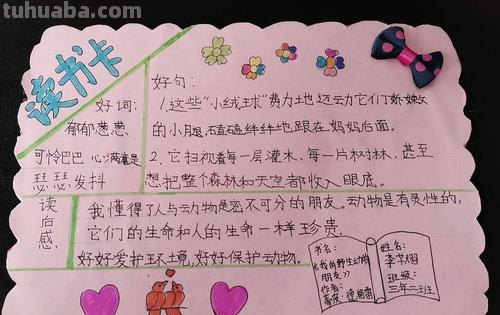 tuhuaba.com
读书卡
好词:
郁郁葱葱
可怜巴巴 心满意足
瑟瑟发抖
好句:
1.这些“小绒球”费力地迈动它们娇嫩
的小腿,磕磕绊绊地跟在妈妈后面。
2、它扫视着每一层灌木、每一片树林,甚至
想把整个森林和天空都收入眼底。
读后感:
我懂得了人与动物是密不可分的朋友。动物是有灵性的,
它们的生命和人的生命一样珍贵。
好好爱护环境,好好保护动物。
书名:
《我的野生动物
朋友》
作者:
蒂皮·德格雷
姓名:
班级:
三年二班